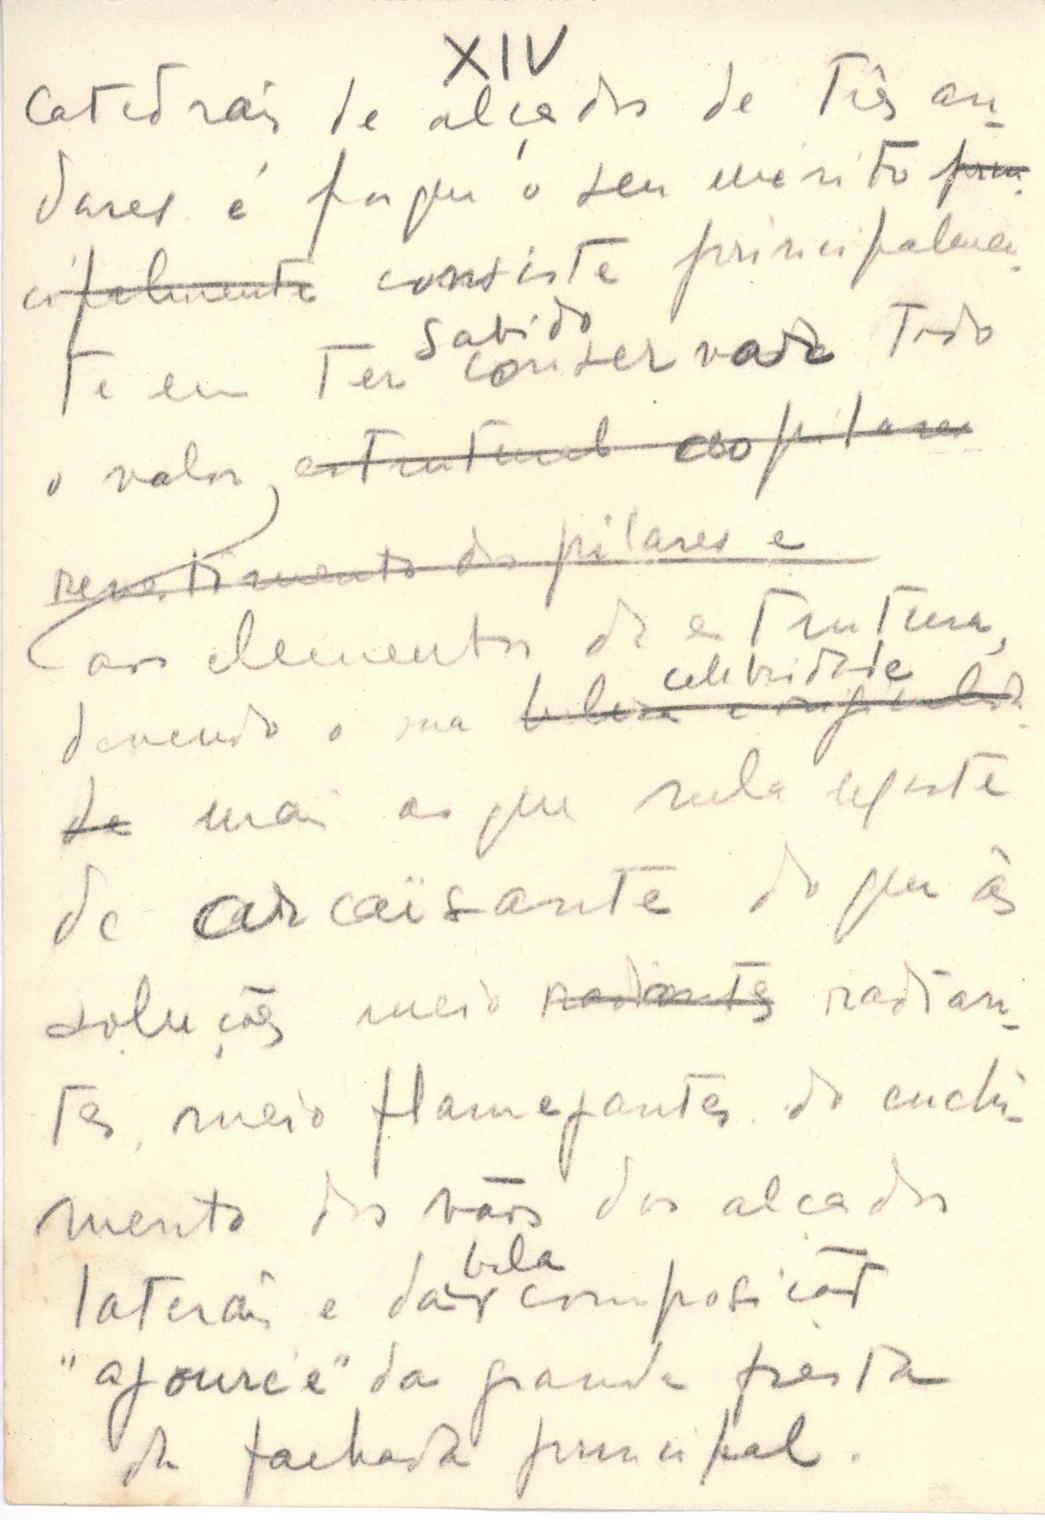 XIV
catedrais de alçados de três an-
dares é porque o seu mérito prin-
cipalmente consiste principalmen-
sabido
te em ter conservado todo
o valor estrutural dos pilares
revestimento dos pilares e
aos elementos da estrutura,
celebridade
devendo a sua beleza e
de mais ao que nela
de arcaïsante do que às
soluções meio radiantes radian-
tes, meio flamejantes do enchi-
mento dos vãos dos alçados
bela
laterais e da composição
"ajourée" da grande fresta
da fachada principal.